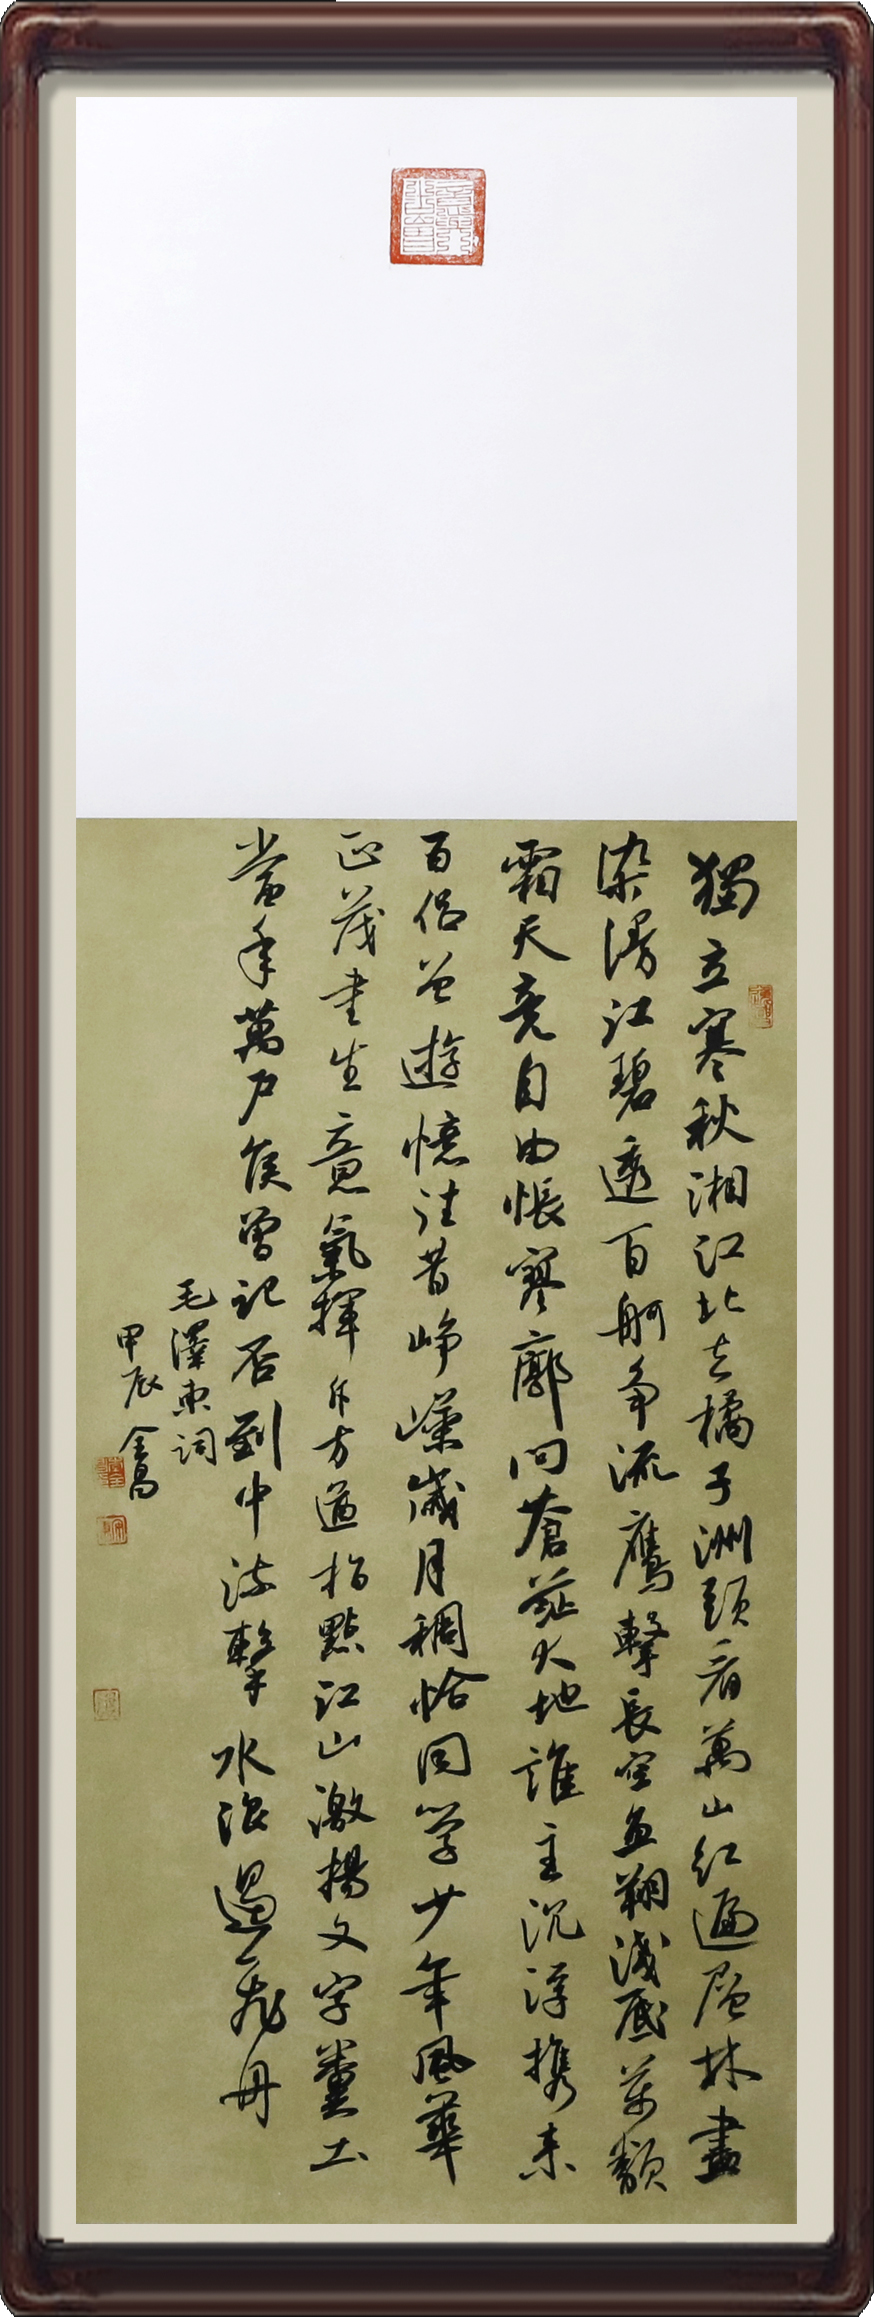 獨立寒秋湘江北去橘子洲頭看萬山紅遍層林盡
染漫江碧透百舸争流鷹擊長空魚翔淺底萬類
霜天竞自由悵寥廓問蒼茫大地誰主沉浮携来
百侣曾遊憶往昔崢嶸歲月稠恰同學少年風華
正茂書生意氣揮斥方遒指點江山激揚文字糞土
當年萬户侯曾記否到中流擊水浪遏飛舟
毛澤東詞
甲辰 全昌